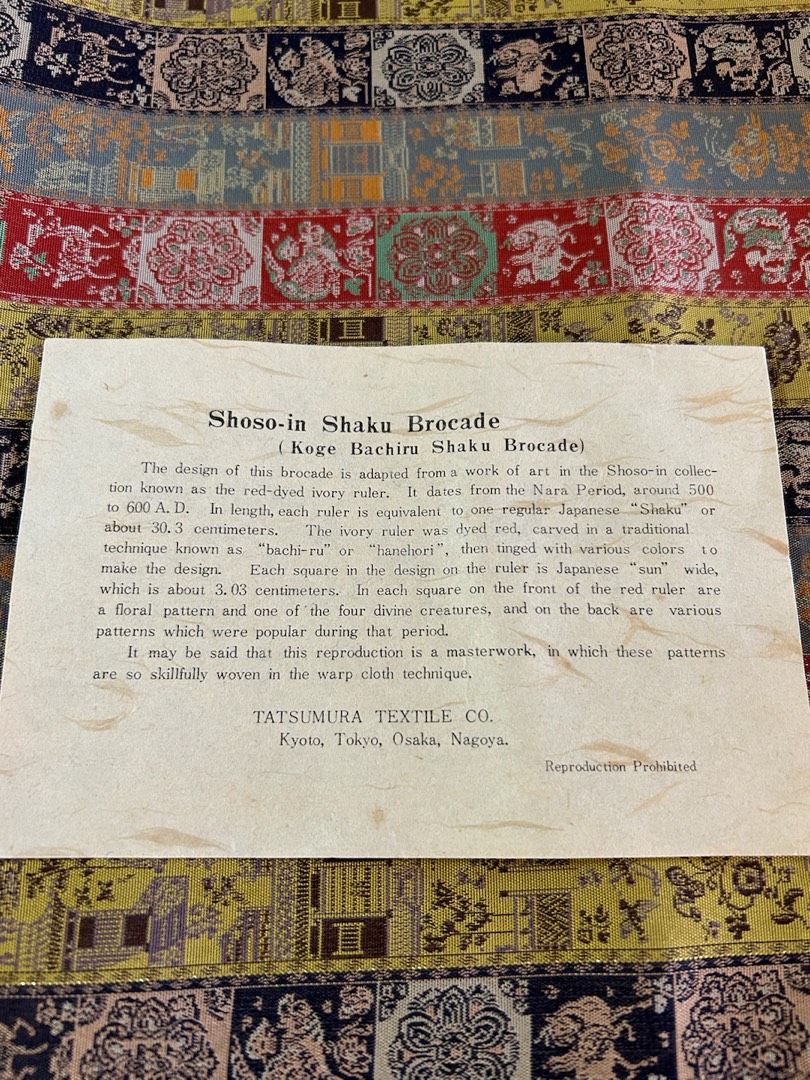 Shoso-in Shaku Brocade
(Koge Bachiru Shaku Brocade)
The design of this brocade is adapted from a work of art in the Shoso-in collec-
tion known as the red-dyed ivory ruler. It dates from the Nara Period, around 500
to 600 A. D. In length, each ruler is equivalent to one regular Japanese "Shaku" or
about 30.3 centimeters. The ivory ruler was dyed red, carved in a traditional
technique known as "bachi-ru" or "hanehori", then tinged with various colors to
make the design. Each square in the design on the ruler is Japanese "sun" wide,
which is about 3.03 centimeters. In each square on the front of the red ruler are
a floral pattern and one of the four divine creatures, and on the back are various
patterns which were popular during that period.
It may be said that this reproduction is a masterwork, in which these patterns
are so skillfully woven in the warp cloth technique.
TATSUMURA TEXTILE CO.
Kyoto, Tokyo, Osaka, Nagoya.
Reproduction Prohibited